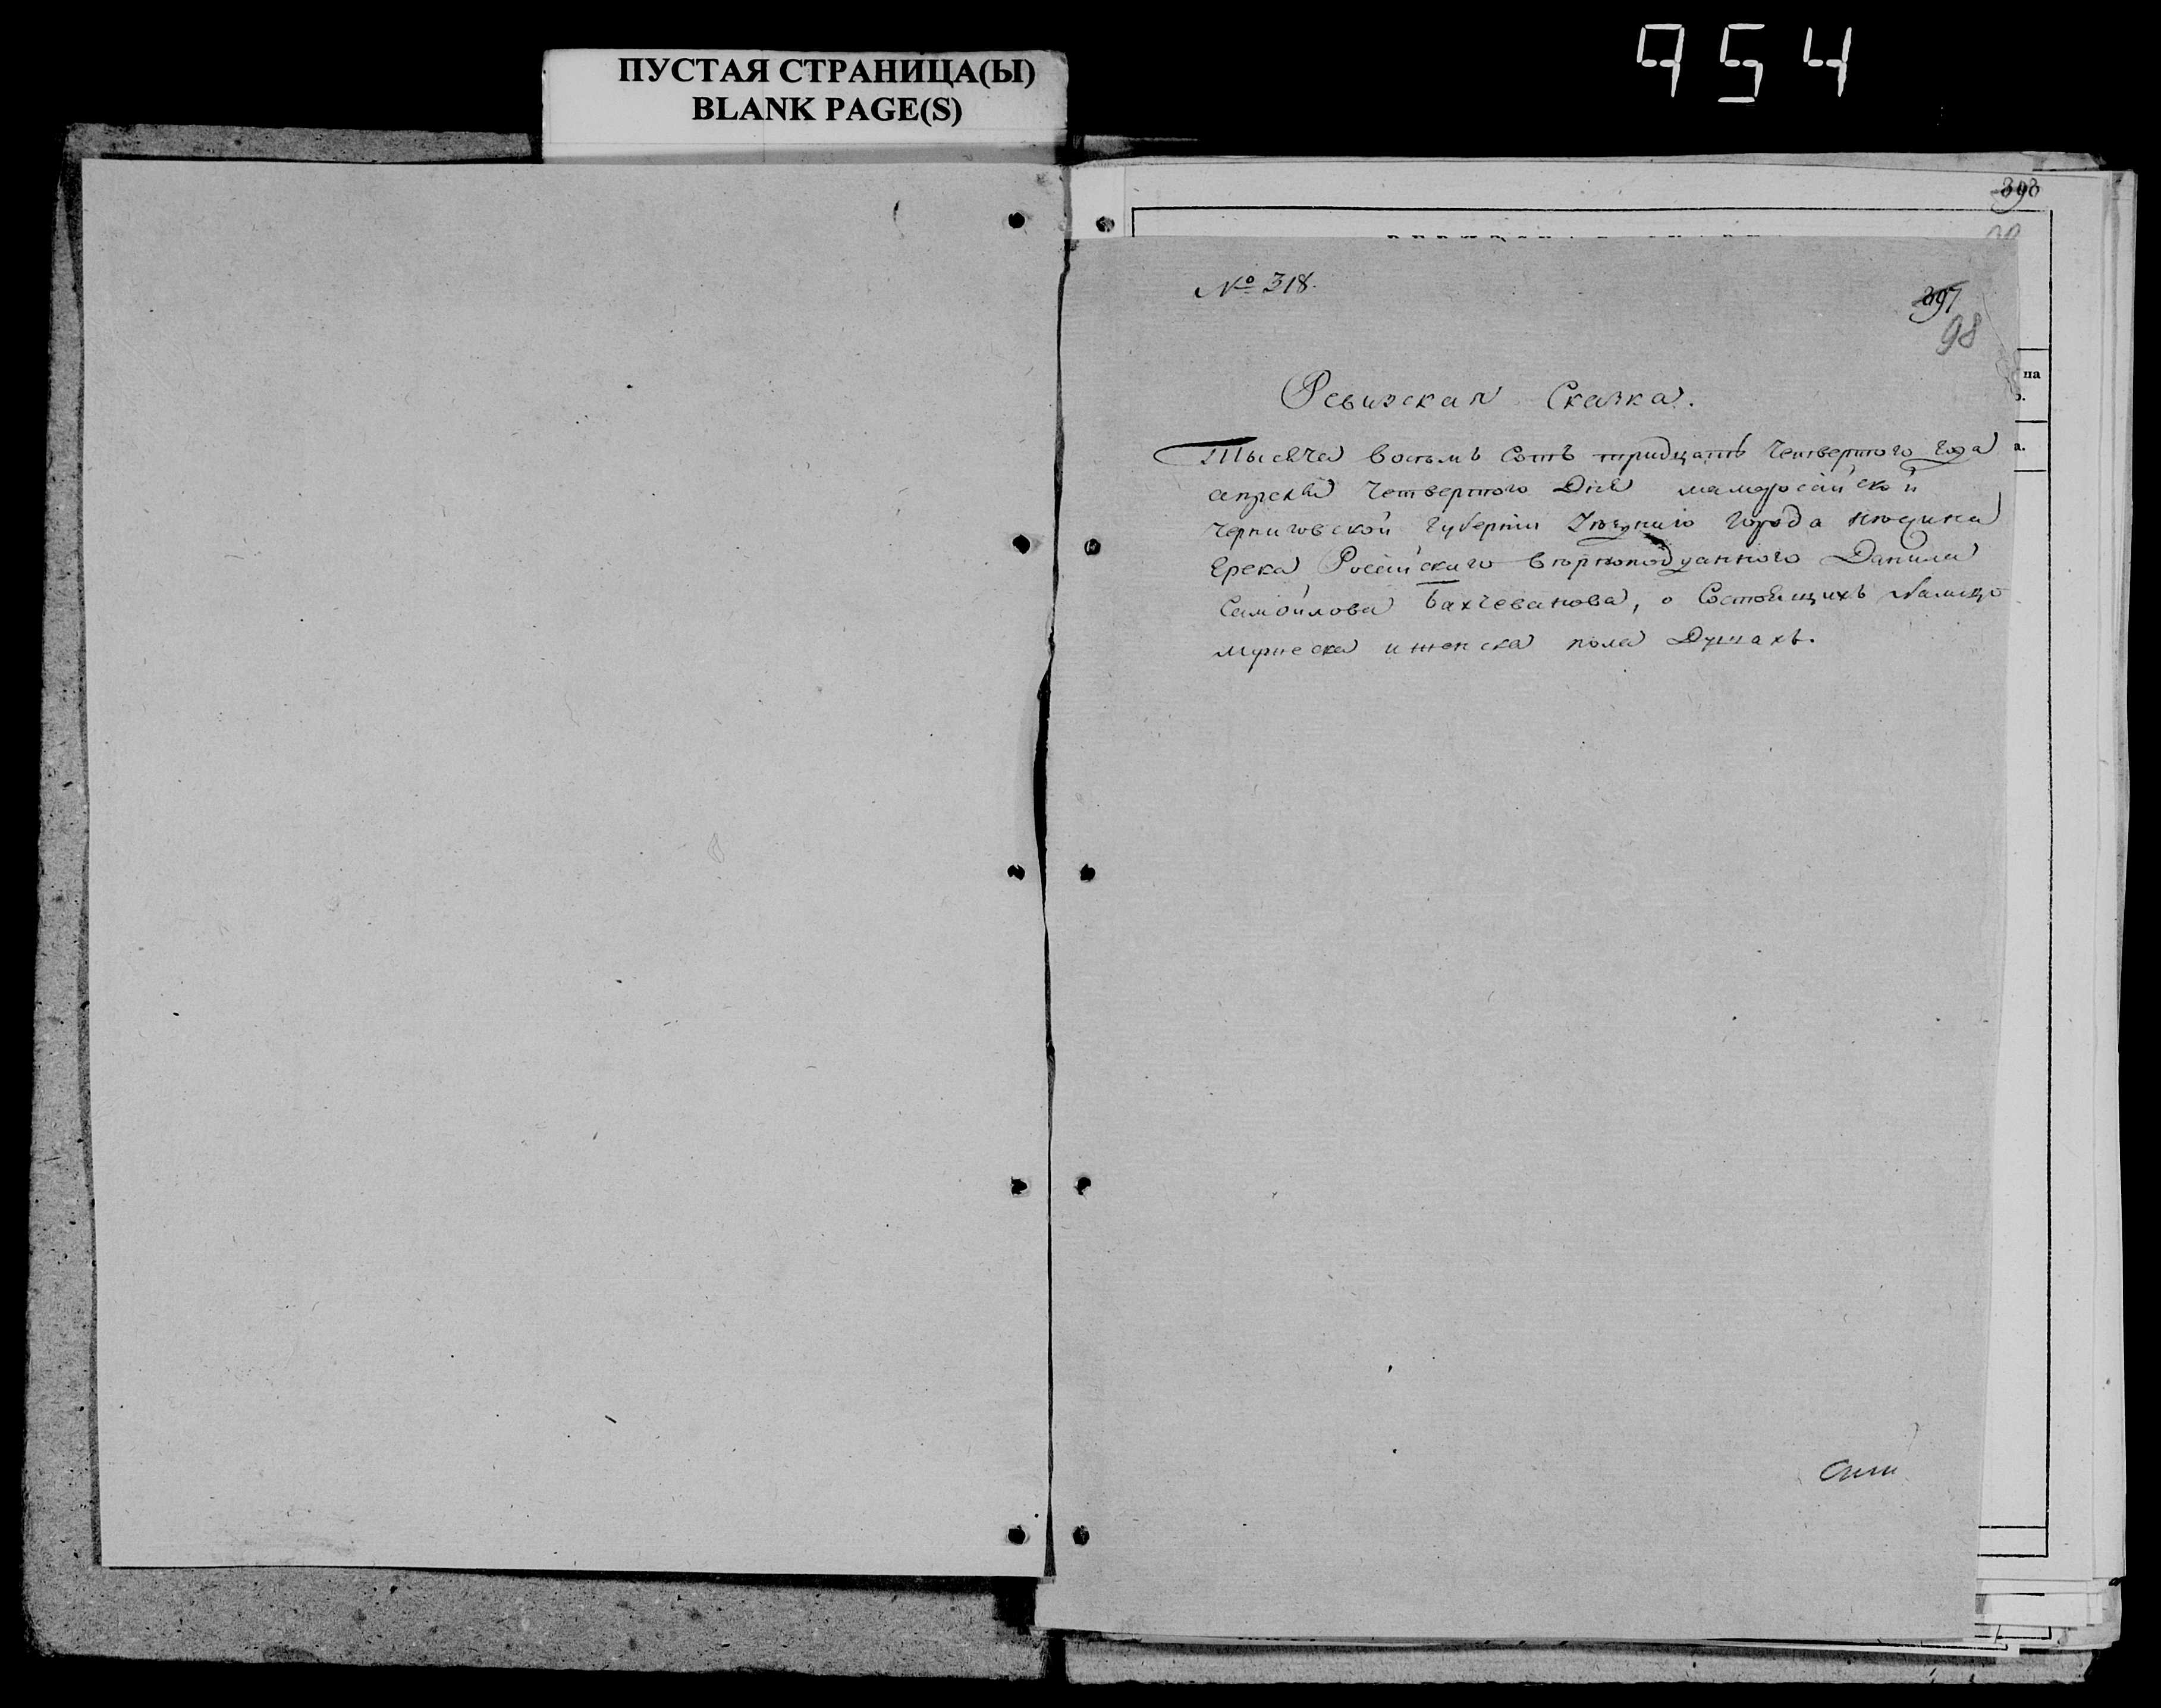 954
ПУСТАЯ СТРАНИЦА(Ы)
BLANK PAGE(S)
393
№ 318.
397
98
на
а.
Ревизская Сказка.
Тысяча восемь Сотъ тридцать Четвертого года
апреля Четвертого Дня малоросійской
Черниговской Губерніи города нѣжина
Грека Росейскаго вѣрноподданного Данила
Самойлова Бахчеванова, о Состоящихъ налицо
мужеска и женска пола Душахъ.